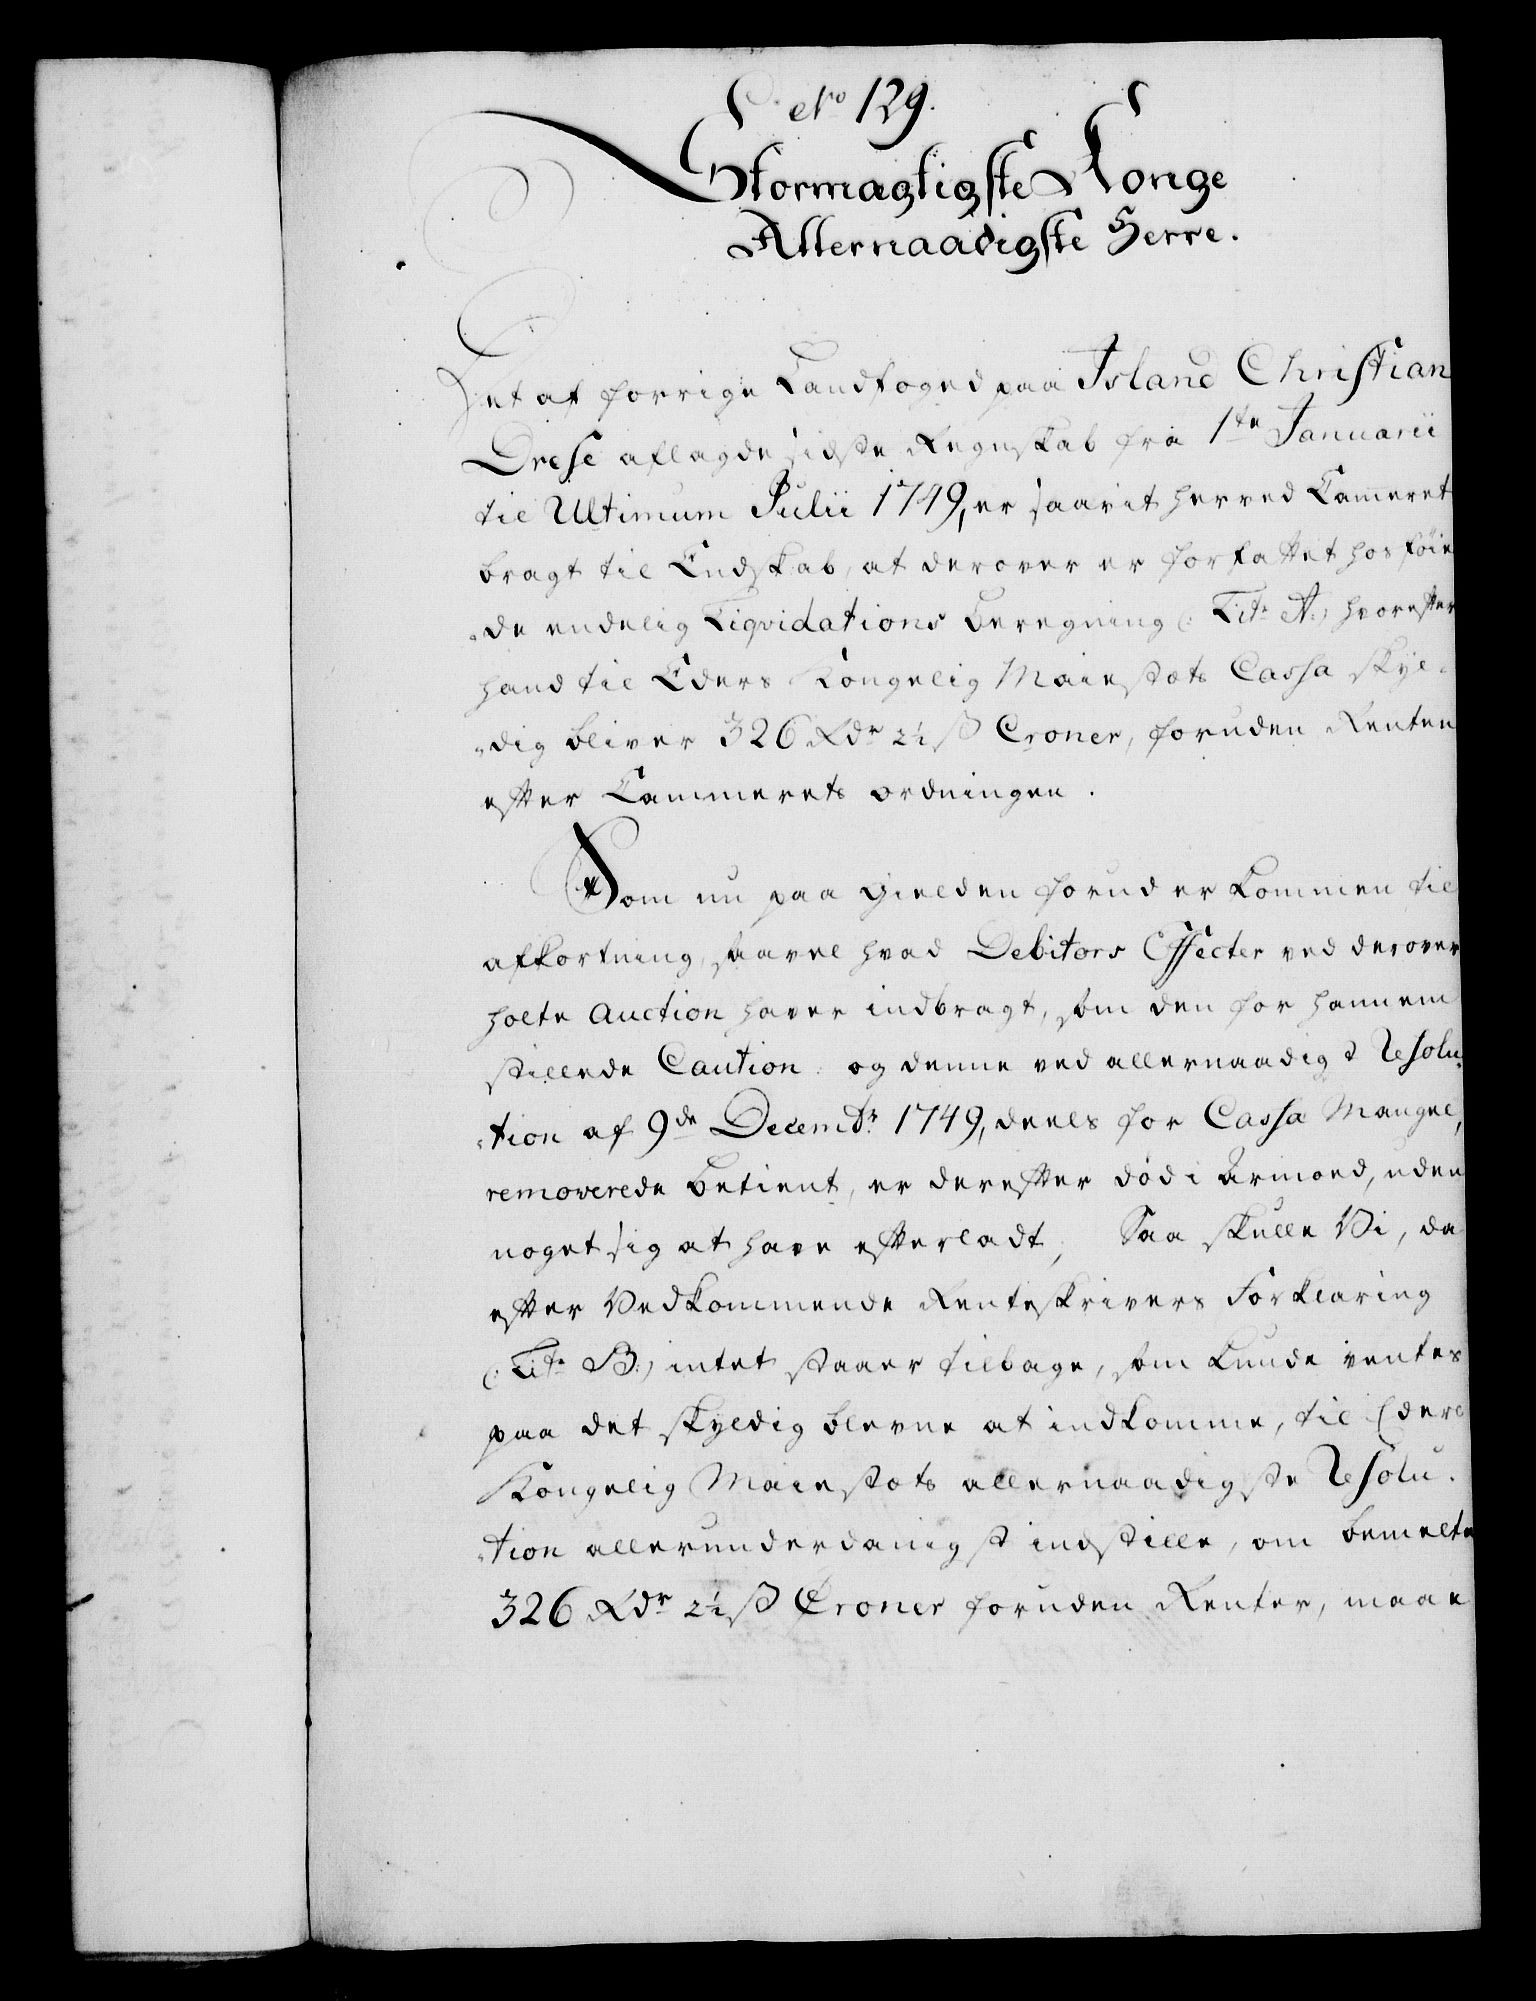 No 129.
Stormægtigste Konge
Allernaadigste Herre.
Det af forrige Landfoged paa Island Christian
Drese aflagde sidste Regnskab fra 1te Januarii
til Ultimum Julii 1749, er saavit her ved Cammeret
bragt til Endskab, at derover er forfattet hosføie
„de endelig Liqvidations Beregning (: Litr A:) hvorefter
hand til Eders Kongelig Maiestæts Cassa skyl„
„dig bliver 326 Rdr 2½ ß Croner, foruden Renten
efter Cammerets ordningen.
Som nu paa Gielden forud er kommen til
afkortning, saavel hvad Debitors Effecter ved derover
holte Auction haver indbragt, som den for hannem
stillede Caution og denne ved allernaadigst Resolu„
„tion af 9de Decembr. 1749, deels for Cassa Mangel,
removerede Betient, er derefter død i Armoed, uden
noget sig at have efterladt, Saa skulle Vi, da
efter Vedkommende Renteskrivers Forklaring
(: Litr B:) intet staaer tilbage, som kunde ventes
paa det skyldig blevne at indkomme, til Eders
Kongelig Maiestæts allernaadigste Resolu„
„tion allerunderdanigst indstille, om bemelte
326 Rdr 2½ ß Croner foruden Renter, maae